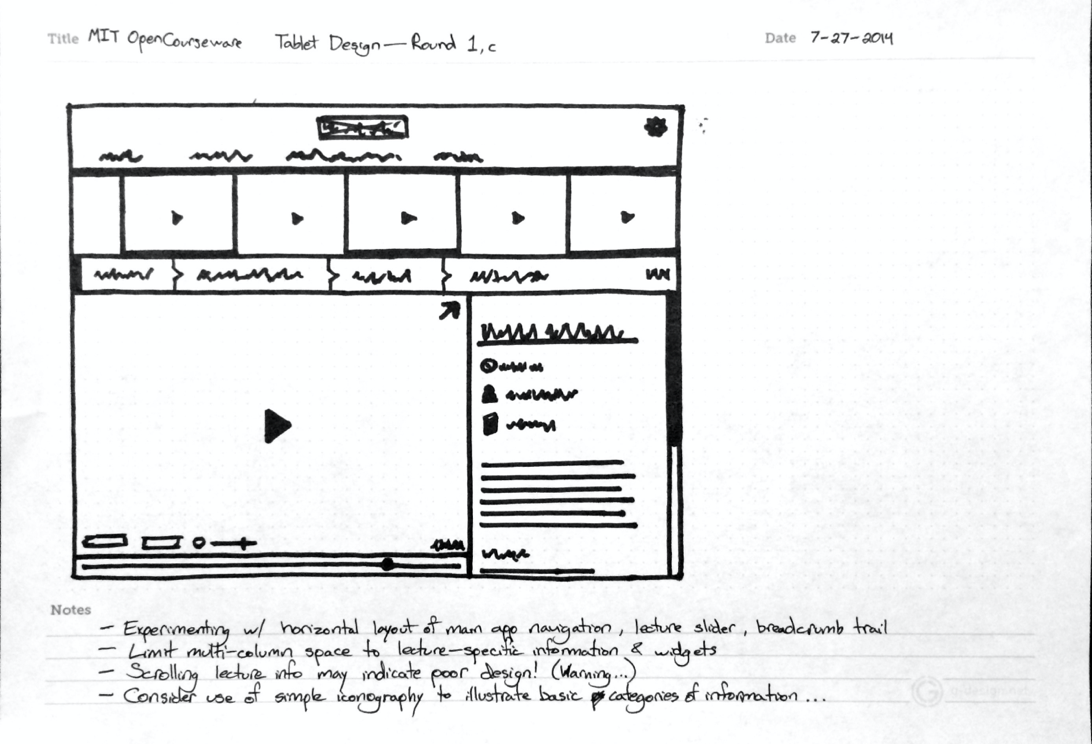 Title MIT OpenCourseware Tablet Design — Round 1,c Date 7-27-2014
Notes
— Experimenting w/ horizontal layout of main app navigation, lecture slider, breadcrumb trail
— Limit multi-column space to lecture-specific information & widgets
— Scrolling lecture info may indicate poor design! (Warning...)
— Consider use of simple iconography to illustrate basic categories of information ...